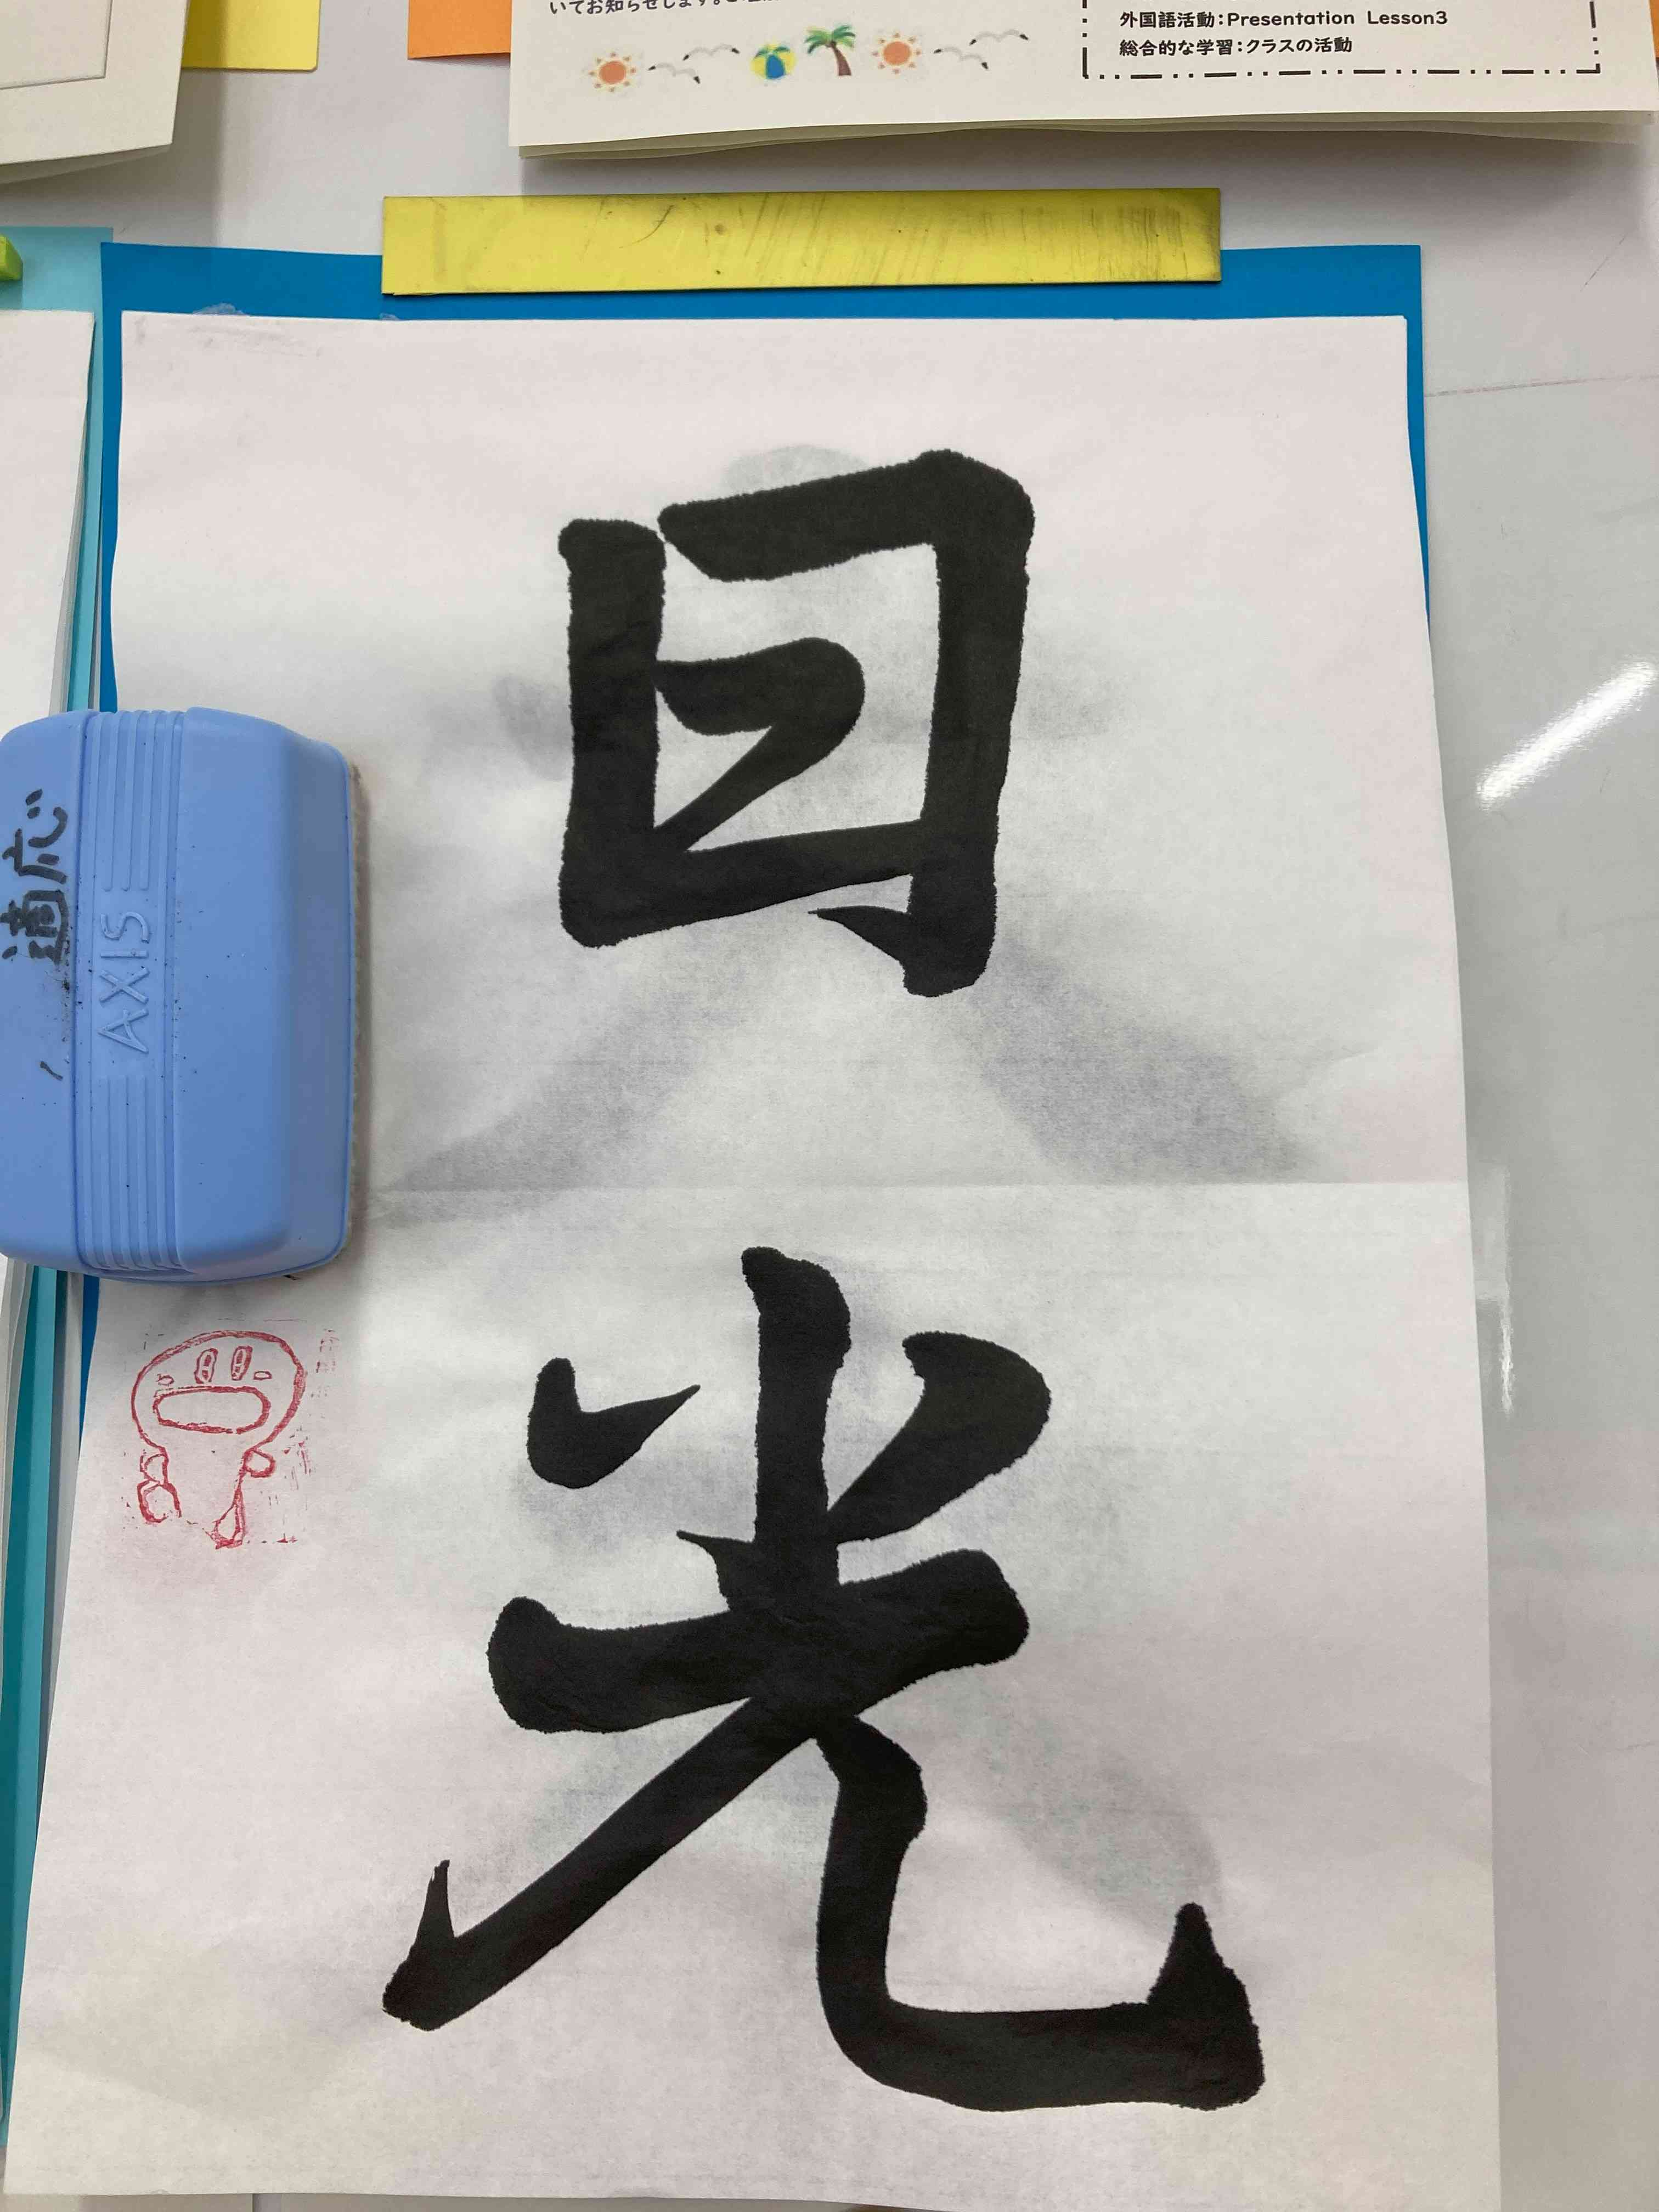 いてお知らせします。
外国語活動:Presentation Lesson3
総合的な学習:クラスの活動
日
光
適応
AXIS